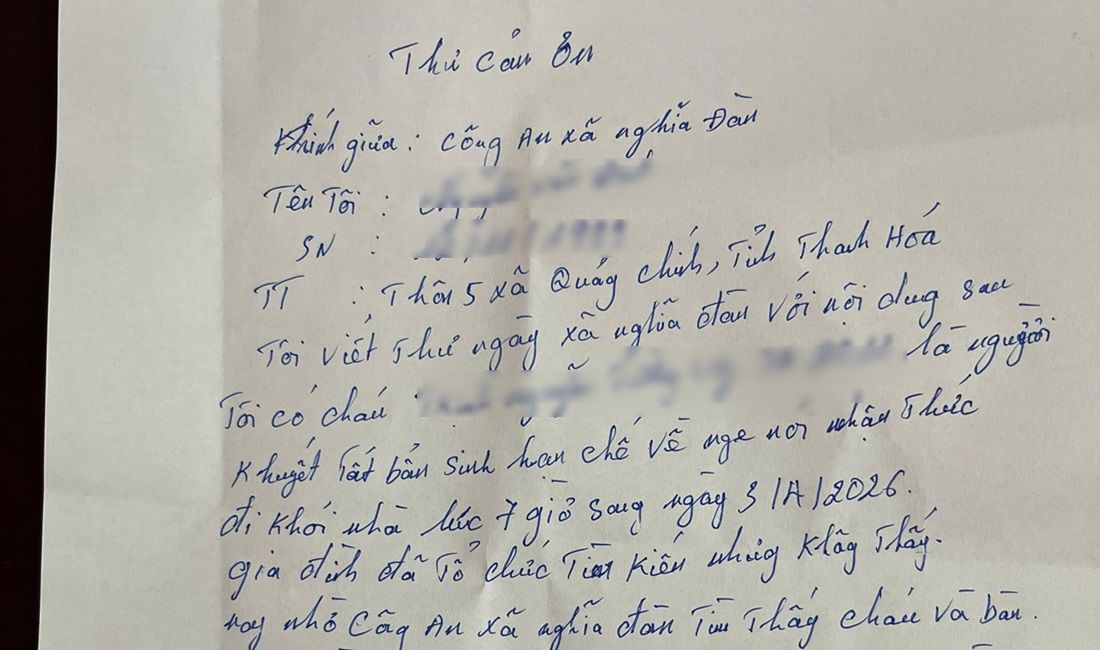 Thư cản ơn
Khính giữa: Công An xã nghĩa Đàn
Tên Tôi :
SN :
TT : Thôn 5 xã Quảg chính, Tỉnh Thanh Hóa
Tôi viết Thư ngày xã nghĩa đàn với nội dung sau
Tôi có cháu là người
Khuyết Tất bẩn sinh hạn chế về nge nơi nhận Thức
đi khỏi nhà lúc 7 giờ sang ngày 3/A/2026.
gia đình đã Tổ chức Tìm kiến nhưg Khôg Thấy.
nay nhờ Côg An xã nghĩa đàn Tìm Thấy cháu và bàn.